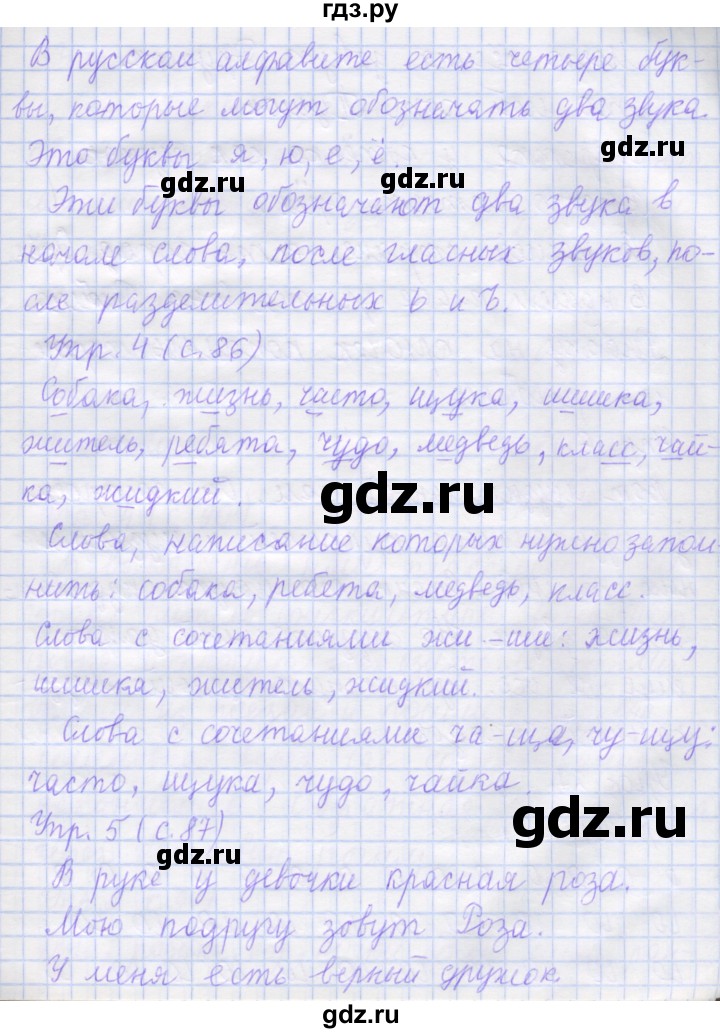 гдз.ру
В русском алфавите есть четыре бук-
вы, которые могут обозначать два звука.
Это буквы я, ю, е, ё.
gdz.ru
gdz.ru
Эти буквы обозначают два звука в
начале слова, после гласных звуков, по-
сле разделительных ь и ъ.
Упр. 4 (с. 86)
Собака, жизнь, часто, щука, шишка,
житель, ребята, чудо, медведь, класс, чай-
ка, жидкий.
gdz.ru
Слова, написание которых нужно запом-
нить: собака, ребята, медведь, класс.
gdz.ru
Слова с сочетаниями жи-ши: жизнь,
gdz.ru
шишка, житель, жидкий.
Слова с сочетаниями ча-ща, чу-щу:
часто, щука, чудо, чайка.
gdz.ru
Упр. 5 (с. 87)
gdz.ru
В руке у девочки красная роза.
Мою подругу зовут Роза.
У меня есть верный дружок.
gdz.ru